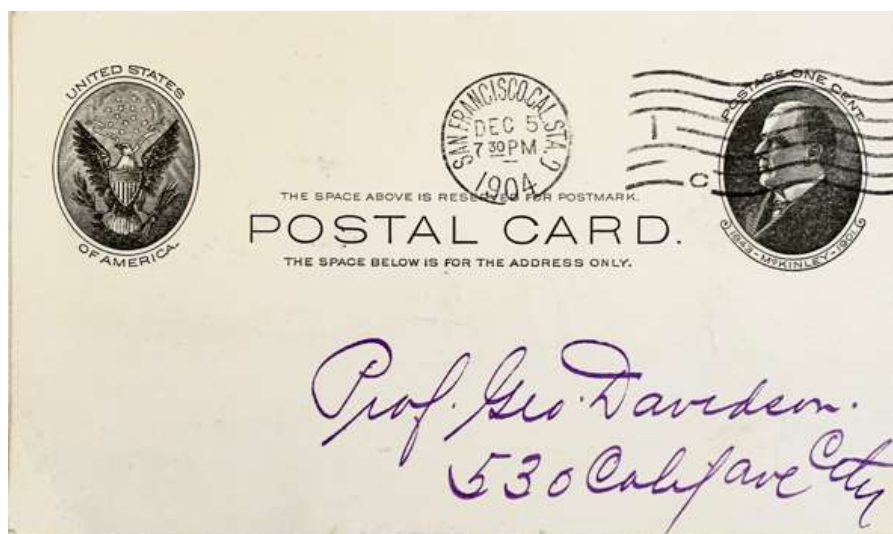 UNITED STATES
OF AMERICA.
SAN FRANCISCO, CAL. STA. C
DEC 5
7 30 PM
1904
1
C
POSTAGE ONE CENT.
1843 - McKINLEY - 1901
THE SPACE ABOVE IS RESERVED FOR POSTMARK.
POSTAL CARD.
THE SPACE BELOW IS FOR THE ADDRESS ONLY.
Prof. Geo. Davidson.
530 Calif ave City